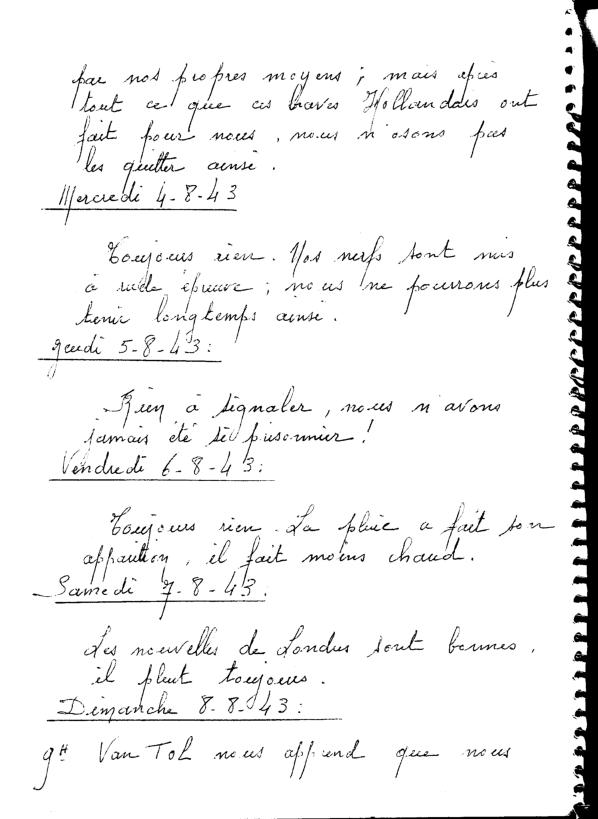 par nos propres moyens ; mais après
tout ce que ces braves Hollandais ont
fait pour nous, nous n'osons pas
les quitter ainsi.
Mercredi 4-8-43
Toujours rien. Nos nerfs sont mis
à rude épreuve ; nous ne pourrons plus
tenir longtemps ainsi.
Jeudi 5-8-43:
Rien à signaler, nous n'avons
jamais été si prisonnier !
Vendredi 6-8-43:
Toujours rien. La pluie a fait son
apparition, il fait moins chaud.
Samedi 7-8-43.
Les nouvelles de Londres sont bonnes,
il pleut toujours.
Dimanche 8-8-43:
Van Tol nous apprend que nous